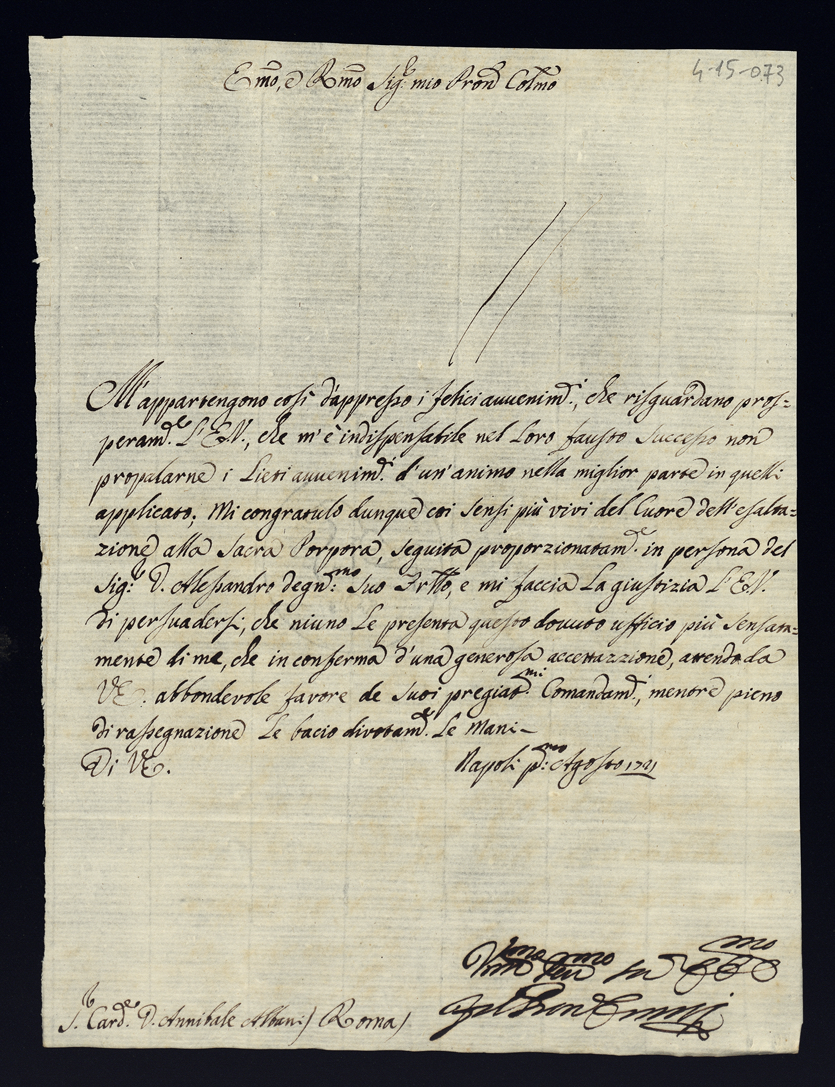 4-15-073
Emo, e Rmo Sig.r mio Pron Colmo
M'appartengono così d'appresso i felici auuenim.ti, che risguardano pros=
peram.te L'E.V., che m'è indispensabile nel Loro fausto Successo non
propalarne i Lieti auuenim.ti d'un'animo nella miglior parte in quelli
applicato; Mi congratulo dunque coi Sensi più vivi del Cuore dell'esalta=
zione alla Sacra Porpora, seguita proporzionatam.te in persona del
Sig.r D. Alessandro degn.mo Suo Frllo, e mi faccia La giustizia L'E.V.
di persuadersi, che niuno Le presenta questo douuto ufficio più Sensata=
mente di me, che in conferma d'una generosa accettazzione, attendo da
VE. abbondevole favore de Suoi pregiat.mi Comandam.ti, mentre pieno
di rassegnazione Le bacio divotam.te Le Mani-
Di VE. Napoli p.mo Agosto 1721
S.r Card.e D. Annibale Albani) Roma)